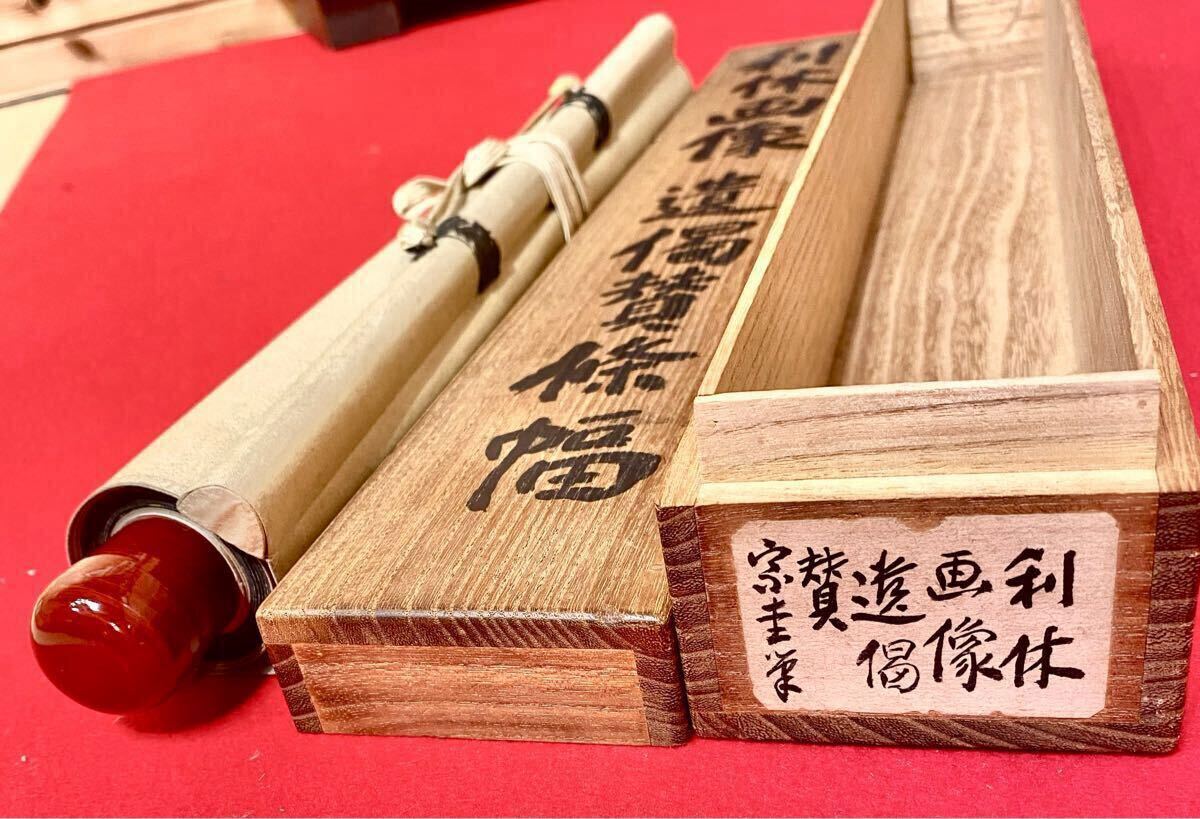 利休画像 遺偈賛 條幅
利休
画像
遺偈
賛
宗圭筆